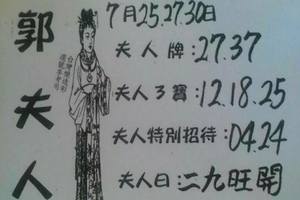 郭夫人
7月25.27.30日
夫人牌:27.37
夫人3寶:12.18.25
夫人特別招待:04.24
夫人日:二九旺開